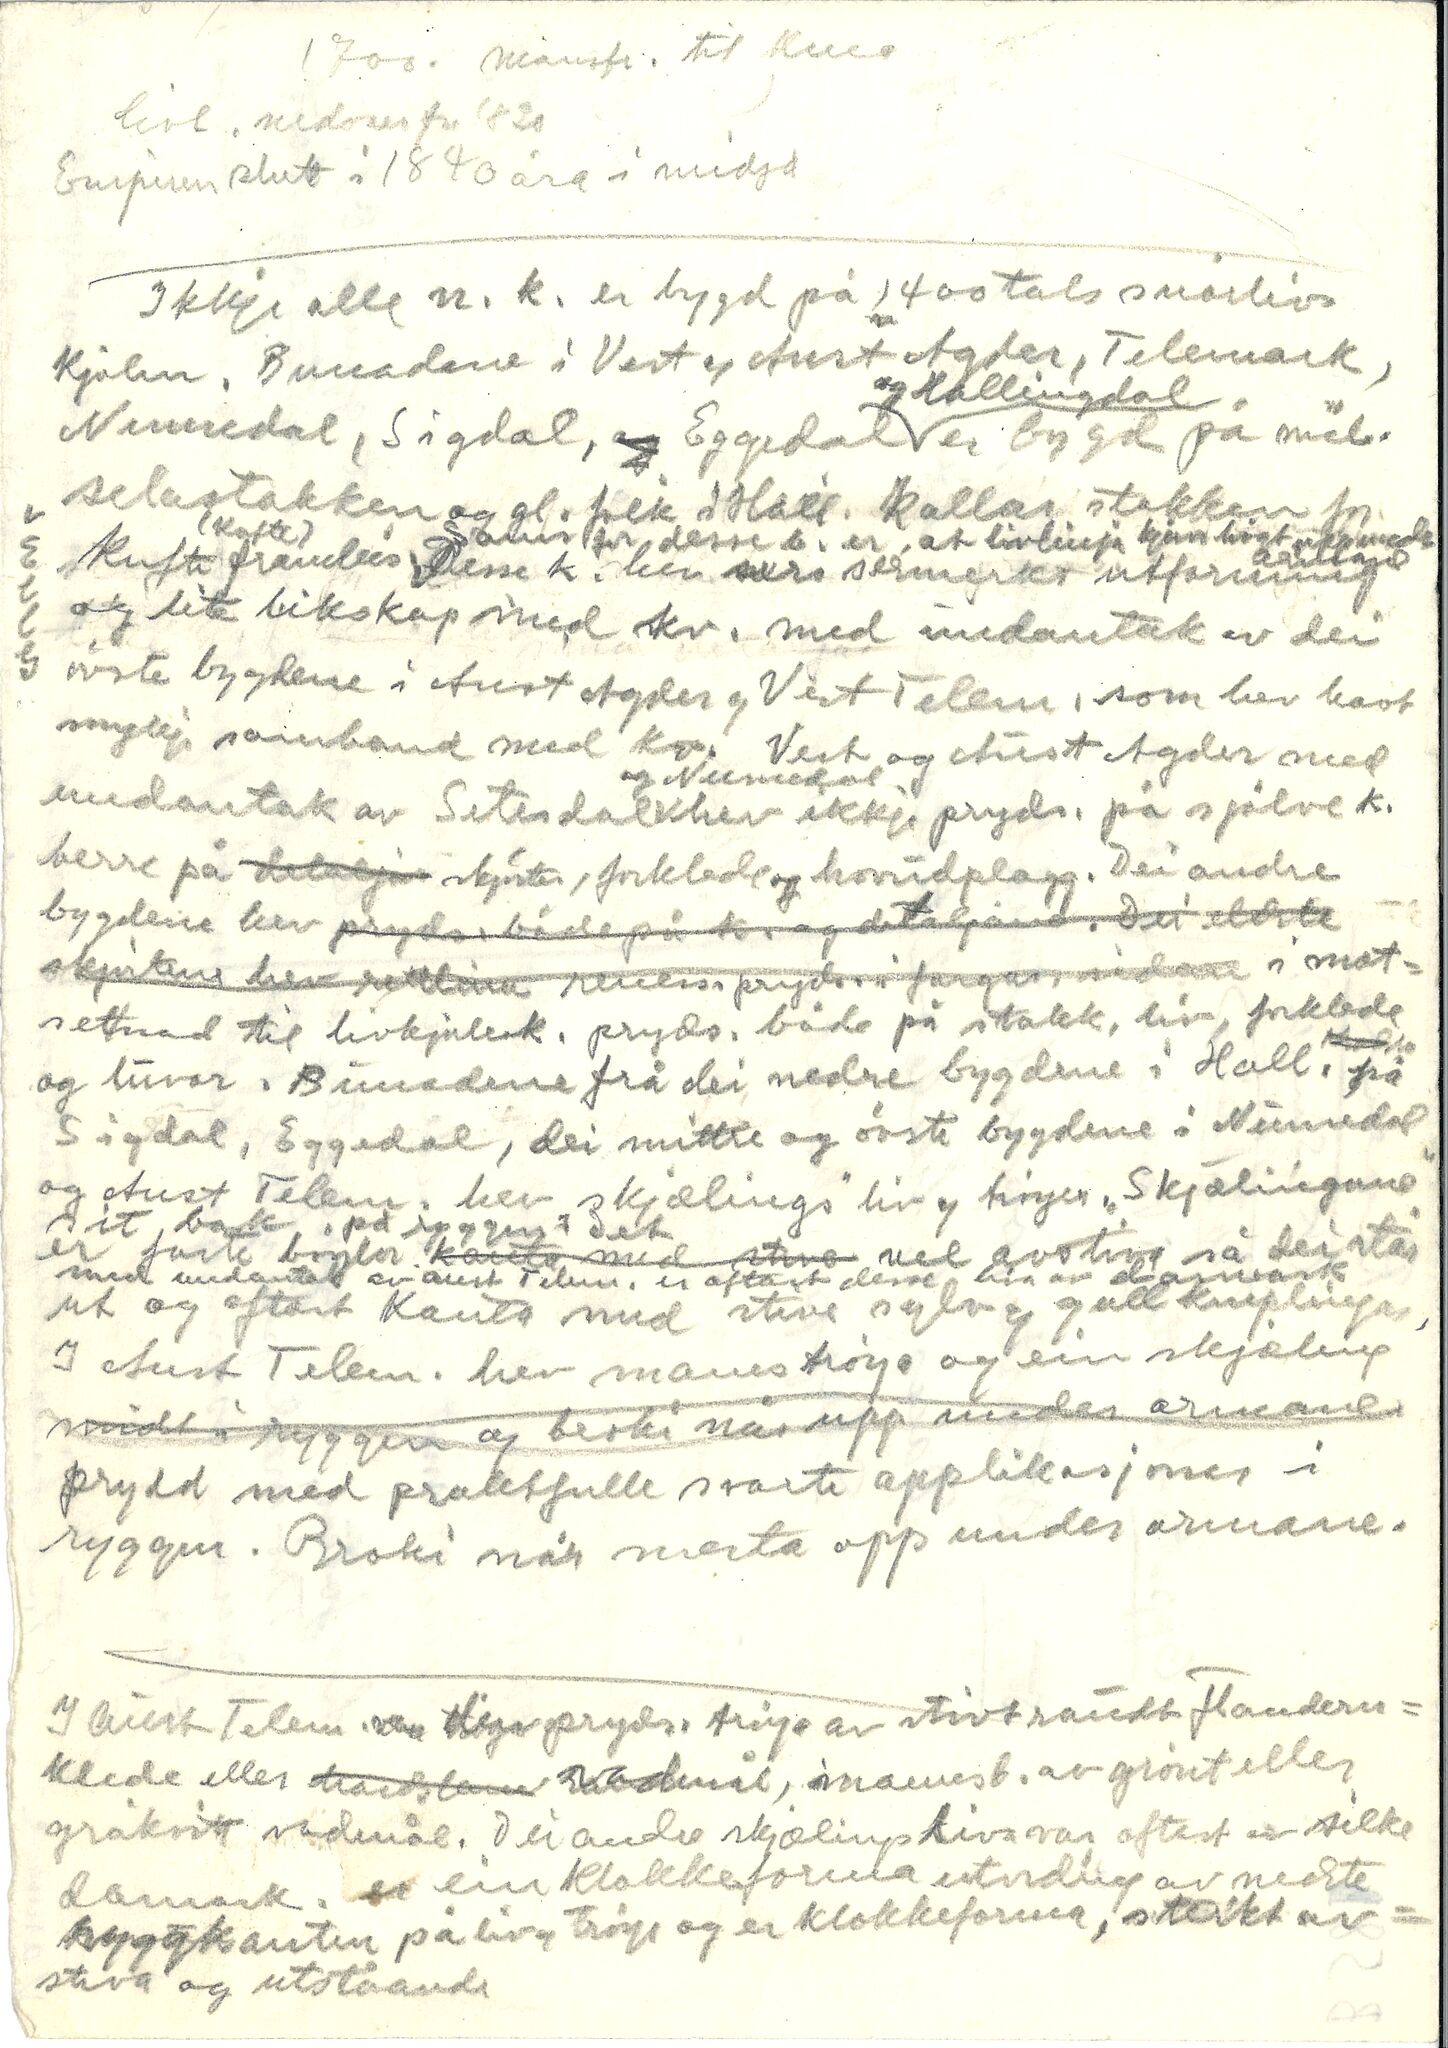 1700. mansfr. til knea
livl. nedover fr 1820
Empiren slutt i 1840 åra i midja
Ikkje alle n. k. er bygd på 1400 tals snørlivs
kjolen. Bunadene i Vest og Aust Agder, Telemark,
og Hallingdal
Numedal, Sigdal, og Eggedal er bygd på mid.
selastakken og gl. folk i Hall. Kallar stakken for
(Kofte)
Kufte framleis. Sams for desse b. er at livlinja kjem høgt upp under
armane
Desse k. hev særmerkt utforming
og lite likskap med kv. med undantak av dei
øvste bygdene i Aust Agder og Vest Telem. som hev havt
mykje samband med kv. Vest og Aust Agder med
og Numedal
undantak av Setesdal hev ikkje pryds. på sjølve k.
berre på skjorter, forklede og hovudplagg. Dei andre
bygdene hev pryds. både på k. og detaljane. Dei eldste
skjortene hev reness. pryds. i i mot=
setnad til livkjolek. pryds. både på stakk, liv, forklede
og luvor. Bunadene frå dei nedre bygdene i Hall. på
Sigdal, Eggedal, dei mittre og øvste bygdene i Numedal
og Aust Telem. hev "skjælings" liv og trøyer. "Skjælingane"
sit bak på ryggen. Det
er faste bøylor kanta med stive vel avstiva så dei står
med undantak av aust Telem. er oftast desse liv av damask
ut og oftast kanta med stive sylv og gull kniplingar,
I Aust Telem. hev manns trøya og ein skjæling
midt i ryggen og broki når upp under armane
prydd med praktfulle svarte applikasjoner i
ryggen. Broki når mesta opp under armane.
I Aust Telem. pryds. trøya av stivt raudt Flandern=
klede eller vadmål, mannsb. av grønt eller
gråkvitt vadmål. Dei andre skjælings liva var oftast av silke
damask. er ein klokkeforma utviding av nedste
ryggkanten på liv og trøye og er klokkeforma, sterkt av=
stiva og utståande